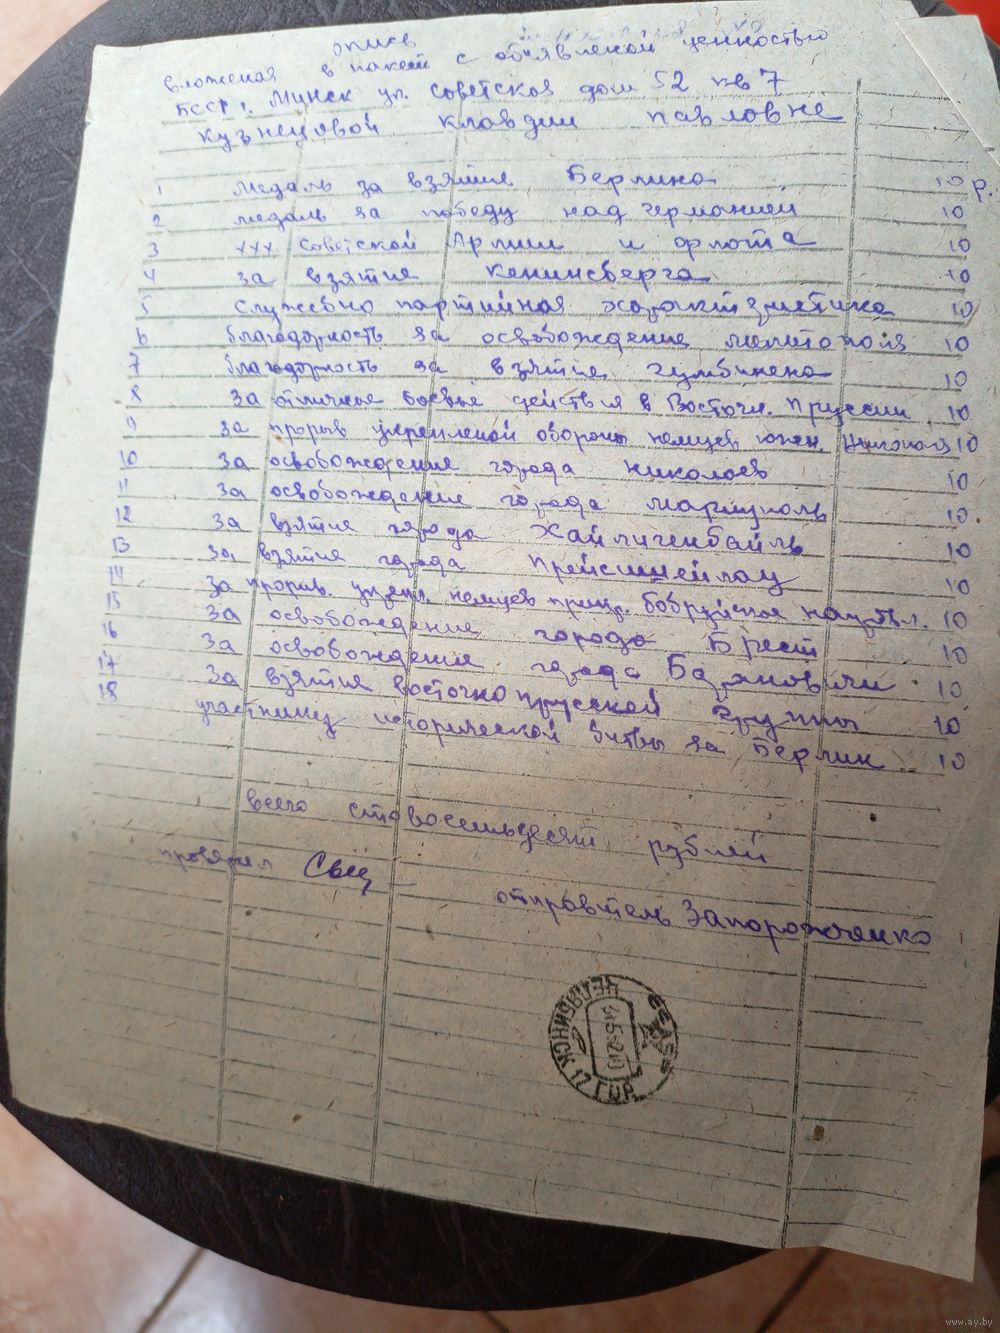 опись
вложеная в пакет с объявленой ценностью
БССР г. Минск ул. Советская дом 52 кв 7
Кузнецовой Клавдии Павловне
1 медаль за взятие Берлина 10 р.
2 медаль за победу над германией 10
3 ххх Советской Армии и флота 10
4 за взятие Кенинсберга 10
5 служебно партийная характэристика 10
6 благодарность за освобождение мелитополя 10
7 благодарность за взятие гумбинена 10
8 за отличные боевые действия в Восточн. Пруссии 10
9 за прорыв укрепленой обороны немцев южн. Никополя 10
10 за освобождение города николаев 10
11 за освобождение города мариуполь 10
12 за взятие города Хайлигенбайль 10
13 за взятие города Прейсишейлау 10
14 за прорыв. укреп. немцев бобруйское направл. 10
15 за освобождение города Брест 10
16 за освобождение города Барановичи 10
17 за взятие восточно прусской группы 10
18 участнику исторической битвы за Берлин 10
всего сто восемьдесят рублей
проверил
отправитель Запорожченко
ЧЕЛЯБИНСК 17